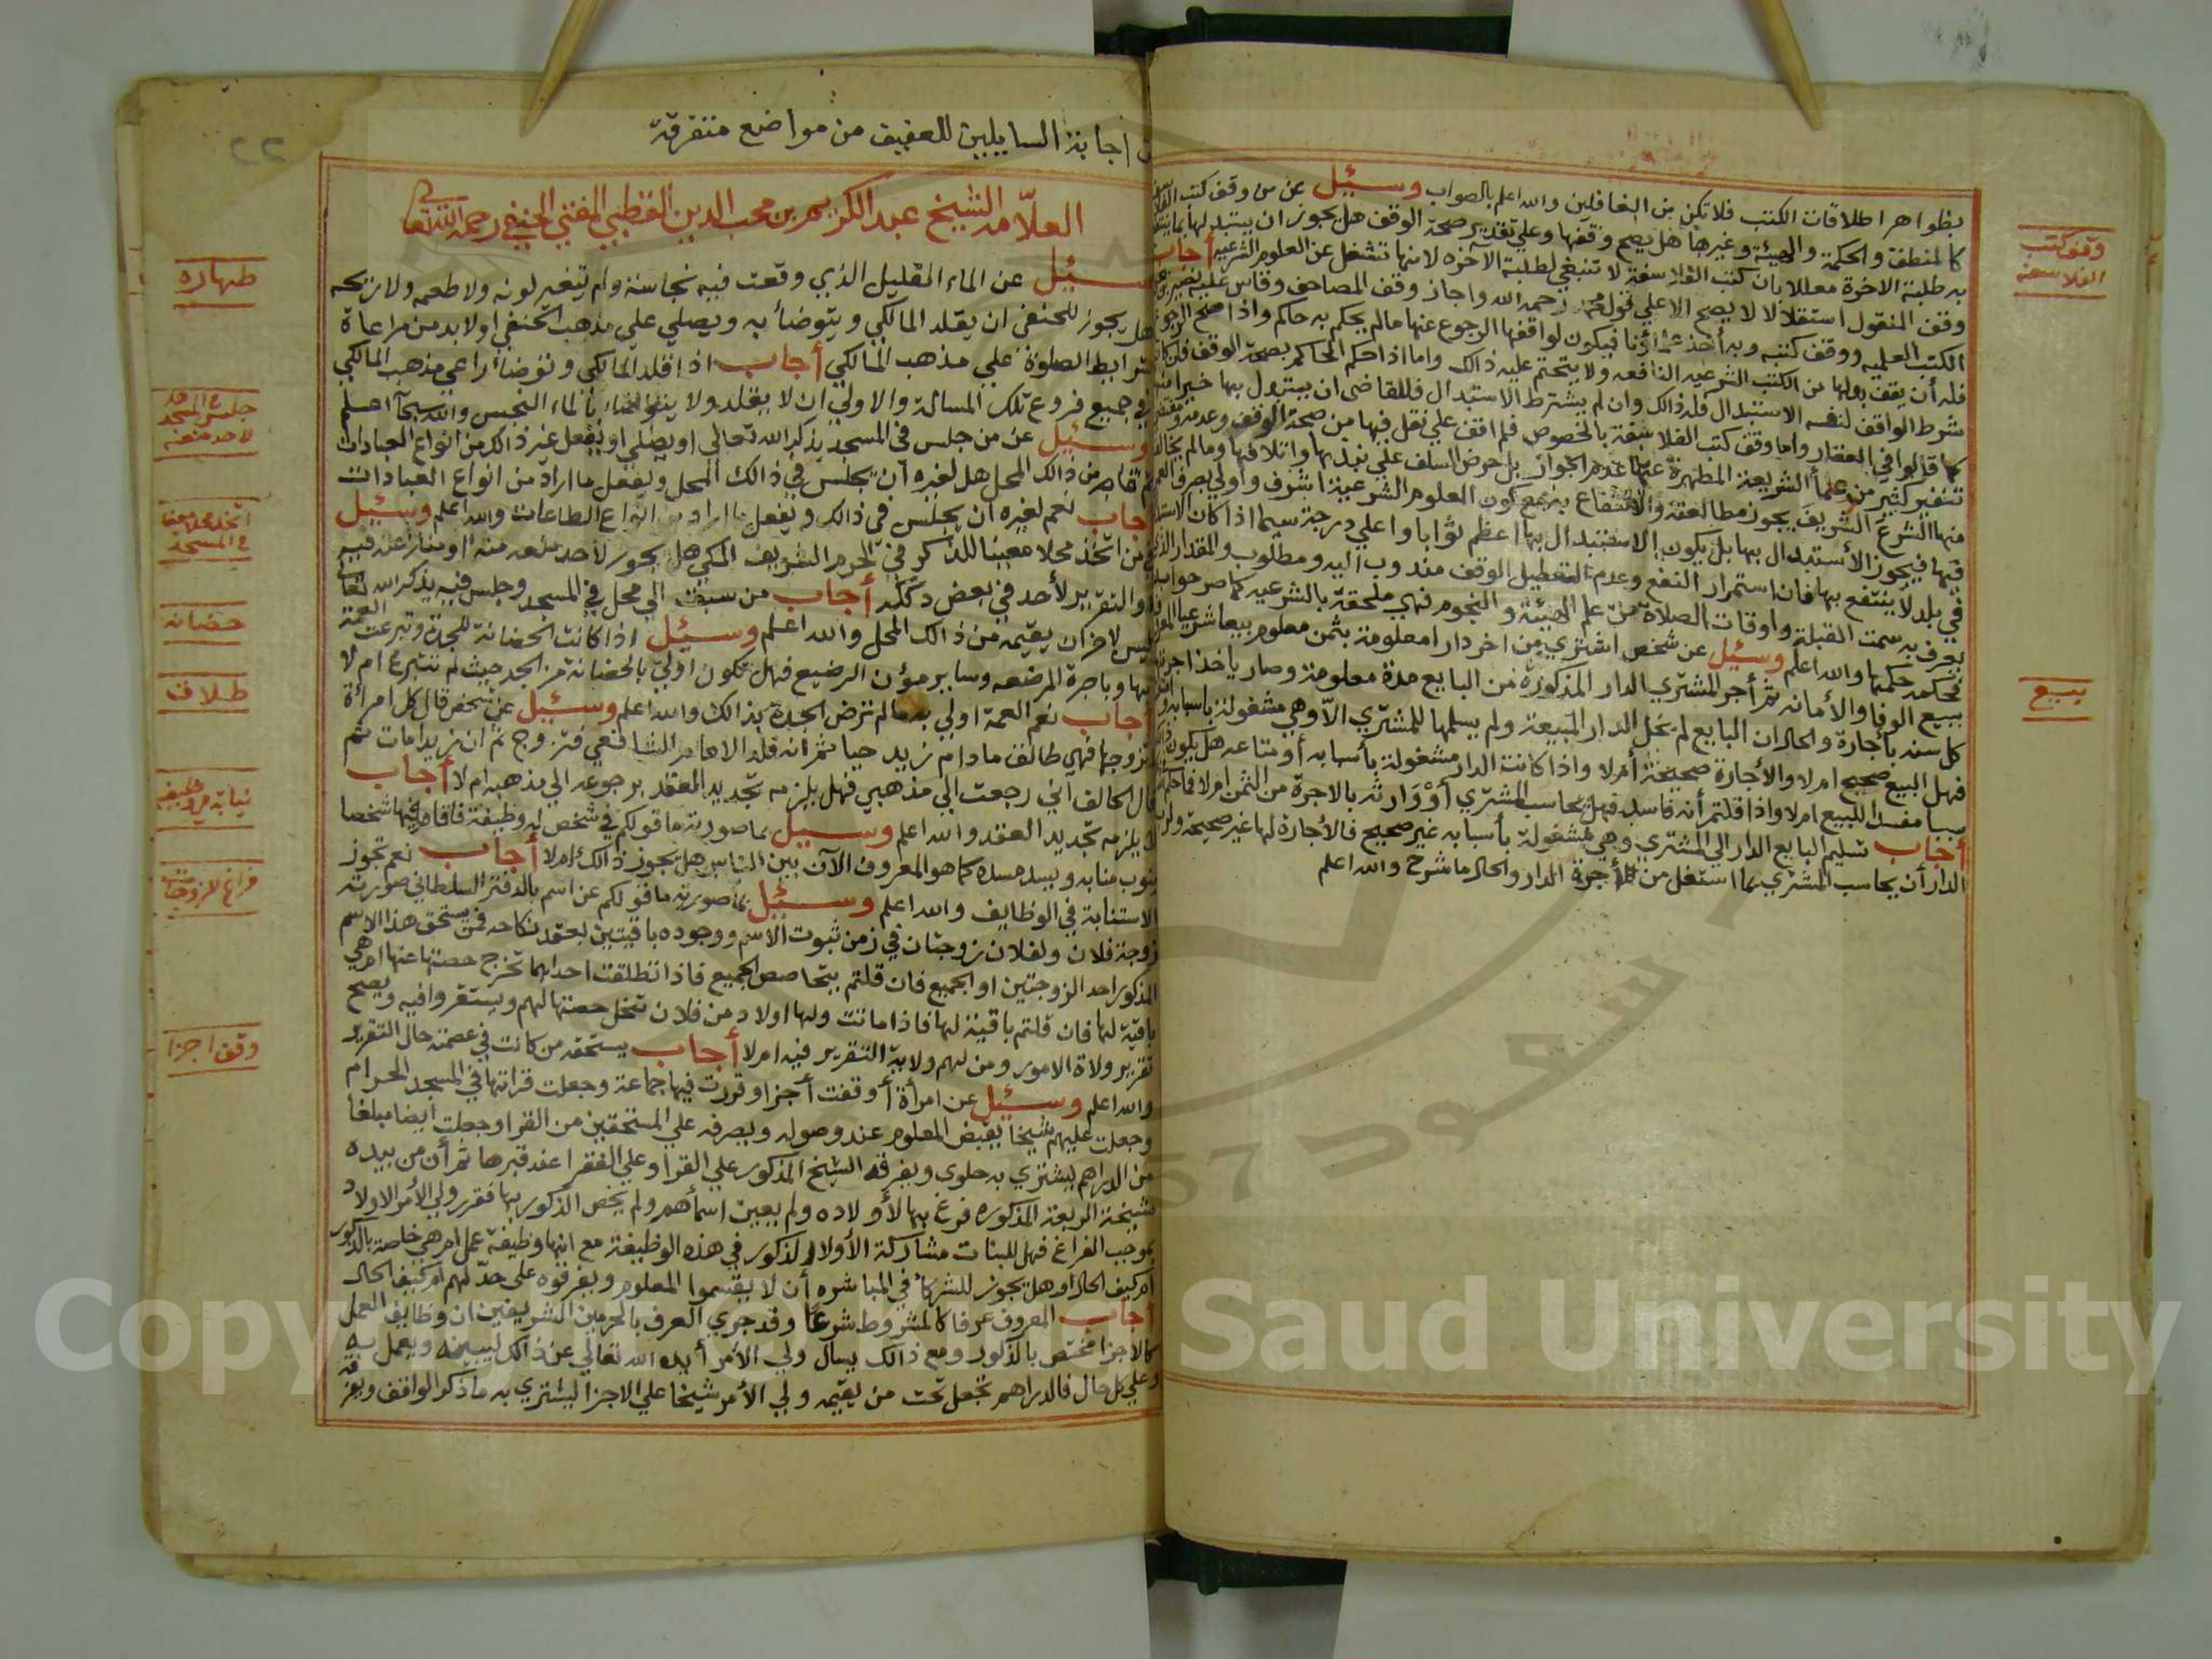 بظواهر اطلاقات الكتب فلا تكن من الغافلين والله اعلم بالصواب وسئيل عن من وقف كتب
كالمنطق والحكمة والهيئة وغيرها هل يصح وقفها وعلي تقدير صحة الوقف هل يجوز ان يستبدلها بما
به طلبة الاخرة معللا بان كتب الفلاسفة لا تنبغي لطلبة الآخره لانها تشغل عن العلوم الشرعيه أجاب
وقف المنقول استقلالا لا يصح الا علي قول محمد رحمه الله واجاز وقف المصاحف وقاس عليه
الكتب العلميه ووقف كتبه وبه أخذ فيكون لواقفها الرجوع عنها مالم يحكم به حاكم واذا صح
فله أن يقف بدلها من الكتب الشرعيه النافعه ولا يتحتم عليه ذالك واما اذا حكم الحاكم بصحة الوقف فان كان
شرط الواقف لنفسه الاستبدال فله ذالك وان لم يشترط الاستبدال فللقاضي ان يستبدل بها خيرا منها
كما قالوا في العقار واما وقف كتب الفلاسفة بالخصوص فلم اقف علي نقل فيها من صحة الوقف وعدمه
تنفير كثير من علمأ الشريعة المطهرة عنها عدم الجواز بل حرض السلف علي نبذها واتلافها ومالم يخالف
منها الشرع الشريف يجوز مطالعته والانتفاع به مع كون العلوم الشرعية اشرف واولي بصرف
فيها فيجوز الأستبدال بها بل يكون الاستبدال بها اعظم ثوابا واعلي درجة سيما اذا كان
في بلد لا ينتفع بها فان استمرار النفع وعدم التعطيل الوقف مندوب اليه ومطلوب والمقدار الذي
يعرف به سمت القبلة واوقات الصلاة من علم الهيئة والنجوم فهي ملحقة بالشرعيه كما صرحوا به
فحكمه حكمها والله اعلم وسئيل عن شخص اشتري من اخر دارا معلومة بثمن معلوم بيعا شرعيا
ببيع الوفا والأمانه ثم أجر المشتري الدار المذكورة من البايع مدة معلومة وصار ياخذ اجرتها
كل سنه بأجارة والحال ان البايع لم يخل الدار المبيعة ولم يسلمها للمشتري الا وهي مشغولة باسبابه
فهل البيع صحيح ام لا والأجارة صحيحة أم لا واذا كانت الدار مشغولة بأسبابه أو متاعه هل يكون
سببا مفسدا للبيع ام لا واذا قلتم أنه فاسد فهل يحاسب المشتري أو وارثه بالاجرة من الثمن ام لا
أجاب تسليم البايع الدار الي المشتري وهي مشغولة بأسبابه غير صحيح فالأجارة لها غير صحيحة
الدار أن يحاسب المشتري بما استغل من أجرة الدار والحال ما شرح والله اعلم
وقف كتب
الفلاسفه
بييع
اجابة السايلين للعفيف من مواضع متفرقة
٢٢
العلامه الشيخ عبد الكريم بن محب الدين القطبي المفتي الحنفي رحمه الله تعالي
سئيل عن الماء القليل الذي وقعت فيه نجاسة ولم يتغير لونه ولا طعمه ولا ريحه
هل يجوز للحنفي ان يقلد المالكي ويتوضأ به ويصلي علي مذهب الحنفي اولا بد من مراعاة
شرايط الصلوة علي مذهب المالكي أجاب اذا قلد المالكي وتوضأ راعي مذهب المالكي
في جميع فروع تلك المسالة والاولي ان لا يقلد ولا يتوضاء بالماء النجس والله سبحآ اعلم
وسئيل عن من جلس في المسجد يذكر الله تعالي او يصلي او يفعل غير ذالك من انواع العبادات
ثم قام من ذالك المحل هل لغيره أن يجلس في ذالك المحل ويفعل ما اراد من انواع العبادات
أجاب نعم لغيره ان يجلس في ذالك ويفعل ما اراد من انواع الطاعات والله اعلم وسئيل
عن من اتخذ محلا معينا للذكر في الحرم الشريف المكي هل يجوز لأحد منعه منه او منازعته فيه
والتقرير لأحد في بعض دككه أجاب من سبق الي محل في المسجد وجلس فيه يذكر الله تعا
ليس لاخر ان يقيمه من ذالك المحل والله اعلم وسئيل اذا كانت الحضانة للجدة وتبرعت العمة
بها وباجرة المرضعه وساير مؤن الرضيع فهل تكون اولي بالحضانة من الجد حيث لم تتبرع ام لا
أجاب نعم العمة اولي به مالم ترض الجدة بذالك والله اعلم وسئيل عن شخص قال كل امرأة
تزوجها فهي طالق مادام زيد حيا ثم انه قلد الامام الشافعي فتزوج ثم ان زيدا مات ثم
قال الحالف اني رجعت الي مذهبي فهل يلزمه تجديد العقد برجوعه الي مذهبه ام لا أجاب
لا يلزمه تجديد العقد والله اعلم وسئيل بما صورته ما قولكم في شخص له وظيفة فاقام فيها شخصا
ينوب منابه ويسد مسده كما هو المعروف الآن بين الناس هل يجوز ذالك ام لا أجاب نعم تجوز
الاستنابة في الوظايف والله اعلم وسئيل بما صورته ما قولكم عن اسم بالدفتر السلطاني صورته
زوجة فلان ولفلان زوجتان في زمن ثبوت الاسم ووجوده باقيتين بعقد نكاحه فمن يستحق هذا الاسم
المذكور احد الزوجتين او الجميع فان قلتم بتحاصص الجميع فاذا تطلقت احداهما تخرج حصتها عنها ام هي
باقية لها فان قلتم باقية لها فاذا ماتت ولها اولاد من فلان تنحل حصتها لهم ويستقروا فيه ويصح
تقرير ولاة الامور ومن لهم ولاية التقرير فيه ام لا أجاب يستحقه من كانت في عصمته حال التقرير
والله اعلم وسئيل عن امرأة أوقفت أجزا وقررت فيها جماعة وجعلت قراتها في المسجد الحرام
وجعلت عليهم شيخا يقبض المعلوم عند وصوله ويصرفه علي المستحقين من القرا وجعلت ايضا مبلغا
من الدراهم يشتري به حلوي ويفرقه الشيخ المذكور علي القرا وعلي الفقرا عند قبرها ثم أن من بيده
مشيخة الربعة المذكوره فرغ بها لأولاده ولم يعين اسمأهم ولم يخص الذكور بها فقرر ولي الأمر الاولاد
بموجب الفراغ فهل للبنات مشاركة الأولاد الذكور في هذه الوظيفة مع انها وظيفة عمل ام هي خاصة بالذكور
ام كيف الحال وهل يجوز للشركأ في المباشره أن لا يقسموا المعلوم ويفرقوه على حد لهم ام كيف الحال
أجاب المعروف عرفا كالمشروط شرعا وقد جري العرف بالحرمين الشريفين ان وظايف العمل
كالاجزا مختص بالذكور ومع ذالك يسال ولي الأمر أيده الله تعالي عن ذالك ليبينه ويعمل به
وعلي كل حال فالدراهم تجعل تحت من يقيمه ولي الأمر شيخا علي الاجزا ليشتري به ما ذكر الواقف ويفرقه
طهاره
جلس في المسجد
لاحد منعه
اتخذ محلا معينا
في المسجد
حضانه
طلاق
نيابة في وظيفه
وقف اجزا
Copy Saud University